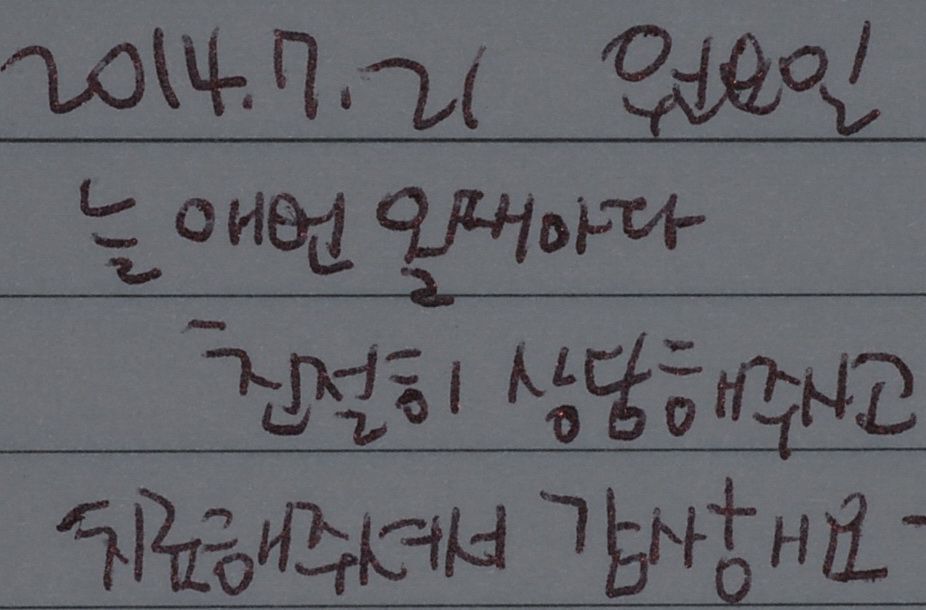 2014.7.21 월요일
늘 애먼 올때마다
친절히 상담해주시고
치료해주셔서 감사해요-